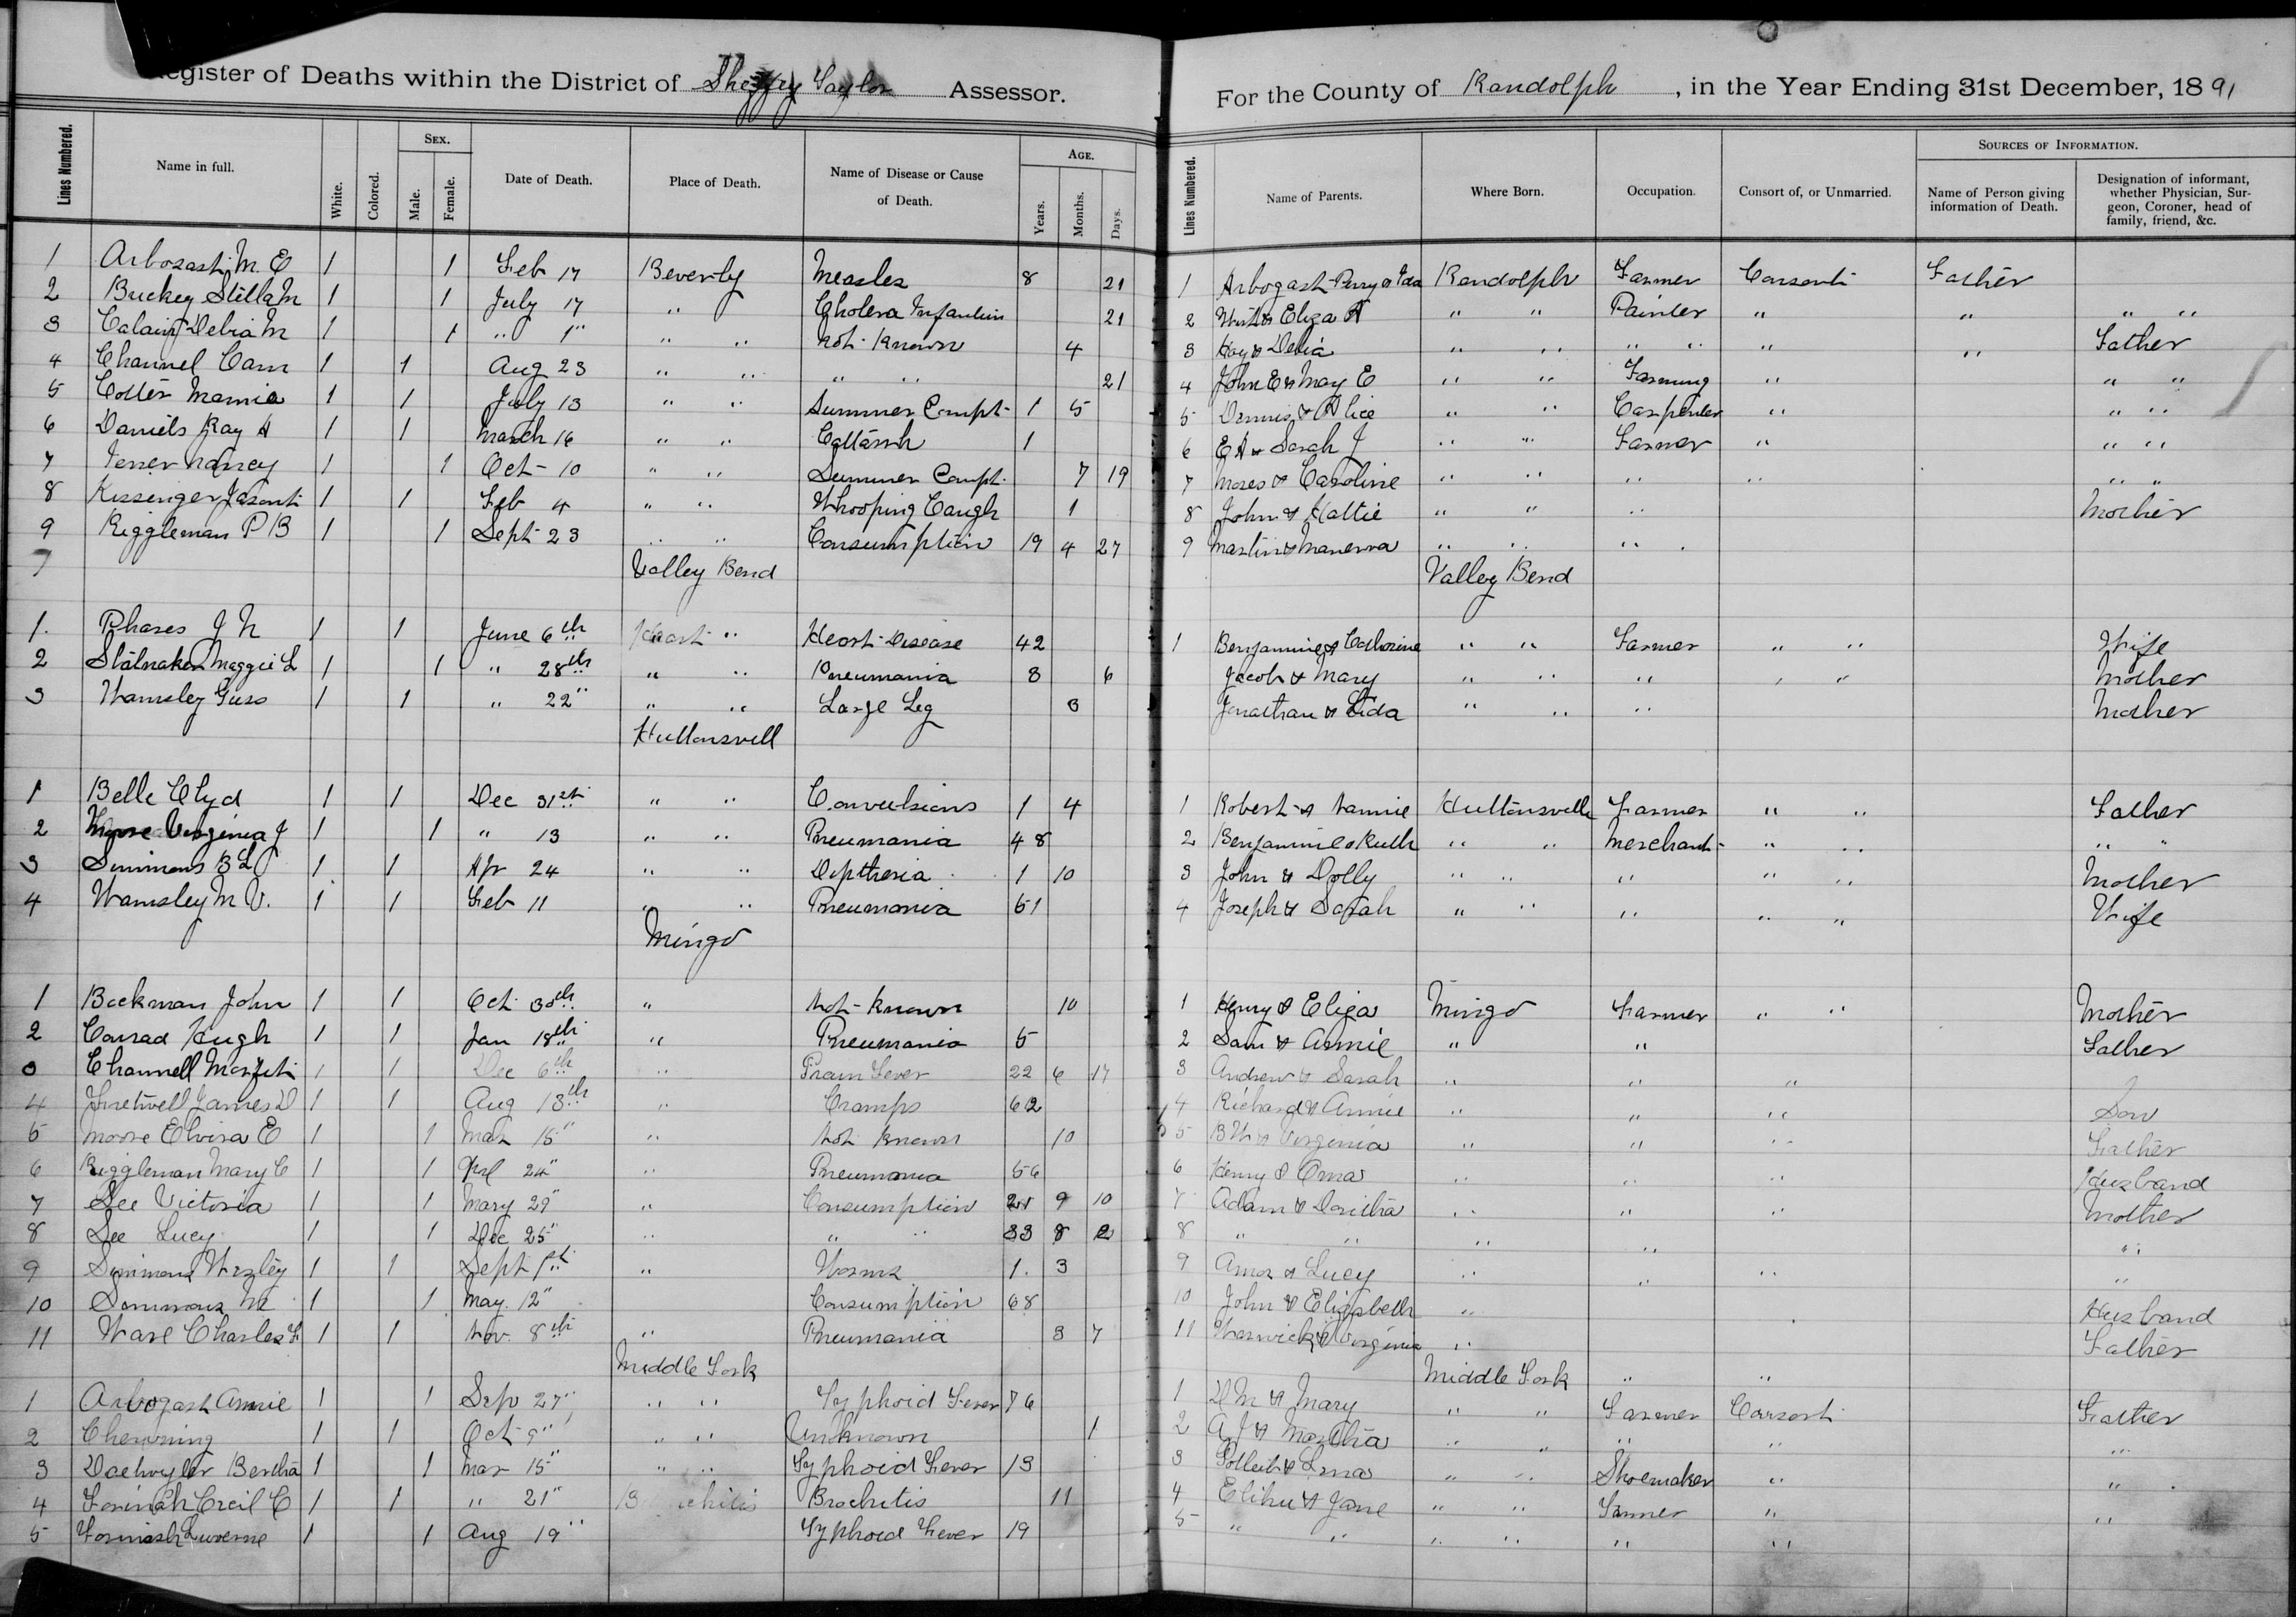 Register of Deaths within the District of Sheffey Taylor Assessor.
For the County of Randolph, in the Year Ending 31st December, 1891
Lines Numbered. Name in full. White. Colored. Sex. Male. Female. Date of Death. Place of Death. Name of Disease or Cause of Death. Age. Years. Months. Days.
Lines Numbered. Name of Parents. Where Born. Occupation. Consort of, or Unmarried. Sources of Information. Name of Person giving information of Death. Designation of informant, whether Physician, Surgeon, Coroner, head of family, friend, &c.
1 Arbogast M. E 1 1 Feb 17 Beverly Measles 8 21 1 Arbogast Perry & Ida Randolph Farmer Consort Father
2 Buckey Stella M 1 1 July 17 " Cholera Infantum 21 2 & Eliza A " " Painter " " " "
3 Delia M 1 1 " 1" " " Not Known 4 3 Hay & Delia " " " " " " Father
4 Channel Cam 1 1 Aug 23 " " " " 21 4 John E & May E " " Farming " " "
5 Coller Mamia 1 1 July 13 " " Summer Compt 1 5 5 Dennis & Alice " " Carpenter " " "
6 Daniels Ray H 1 1 March 16 " " Cattarrh 1 6 E H & Sarah J " " Farmer " " "
7 Nancy 1 1 Oct 10 " " Summer Compt. 7 19 7 Moses & Caroline " " " " " "
8 Kissinger 1 1 Feb 4 " " Whooping Caugh 1 8 John & Hattie " " " Mother
9 Riggleman P B 1 1 Sept 23 " " Consumption 19 4 27 9 Martin & Manerva " " "
7 Valley Bend Valley Bend
1. Phares J N 1 1 June 6th " Heart Disease 42 1 Benjamine & Catherine " " Farmer " " Wife
2 Stalnaker Maggie L 1 1 " 28th " " Pneumania 3 6 Jacob & Mary " " " " " Mother
3 Wamsley Guss 1 1 " 22" " " Large Leg 3 Jonathan & Lida " " " Mother
Huttonsvell
1 Belle Clyd 1 1 Dec 31st " " Convulsions 1 4 1 Robert & Nannie Huttonsville Farmer " " Father
2 Virginia J 1 1 " 13 " " Pneumania 48 2 Benjamine & Ruth " " Merchant " " " "
3 Simmons B L 1 1 Apr 24 " " Diptheria 1 10 3 John & Dolly " " " " " Mother
4 Wamsley M V. 1 1 Feb 11 " " Pneumonia 61 4 Joseph & Sarah " " " " " Wife
Mingo
1 Beckman John 1 1 Oct 30th " Not Known 10 1 Henry & Eliza Mingo Farmer " " Mother
2 Conrad Hugh 1 1 Jan 18th " Pneumania 5 2 Sam & Annie " " Father
3 Channell 1 1 Dec 6th " Fever 22 6 17 3 Andrew & Sarah " " "
4 James D 1 1 Aug 13th " Cramps 62 4 Richard & Annie " " " Son
5 Moore Elvira E 1 1 Mar 15" " Not Known 10 5 B W & Virginia " " " Father
6 Riggleman Mary C 1 1 24" " Pneumania 56 6 Henry & Oma " " " Husband
7 See Victoria 1 1 Mary 29" " Consumption 21 9 10 7 Adam & " " " Mother
8 See Lucy 1 1 Dec 25" " " " 33 8 2 8 " " " " "
9 Simmons Wesley 1 1 Sept 1st " Worms 1. 3 9 Amos & Lucy " " " "
10 Simmons M 1 1 May. 12" Consumption 68 10 John & Elizabeth " Husband
11 Ware Charles F 1 1 Nov. 8th " Pneumania 3 7 11 Warwick & Virginia " Father
Middle Fork Middle Fork " "
1 Arbogast Annie 1 1 Sep 27" " " Typhoid Fever 76 1 D M & Mary " " Farmer Consort Father
2 Chewning 1 1 Oct 9" " " Unknown 1 2 A J & Martha " " " " "
3 Bertha 1 1 Mar 15" " " Typhoid Fever 13 3 & " " Shoemaker " "
4 Cecil C 1 1 " 21" Brochitis 11 4 Elihu & Jane " " Farmer " "
5 1 1 Aug 19" Typhoid Fever 19 5 " " " " " "